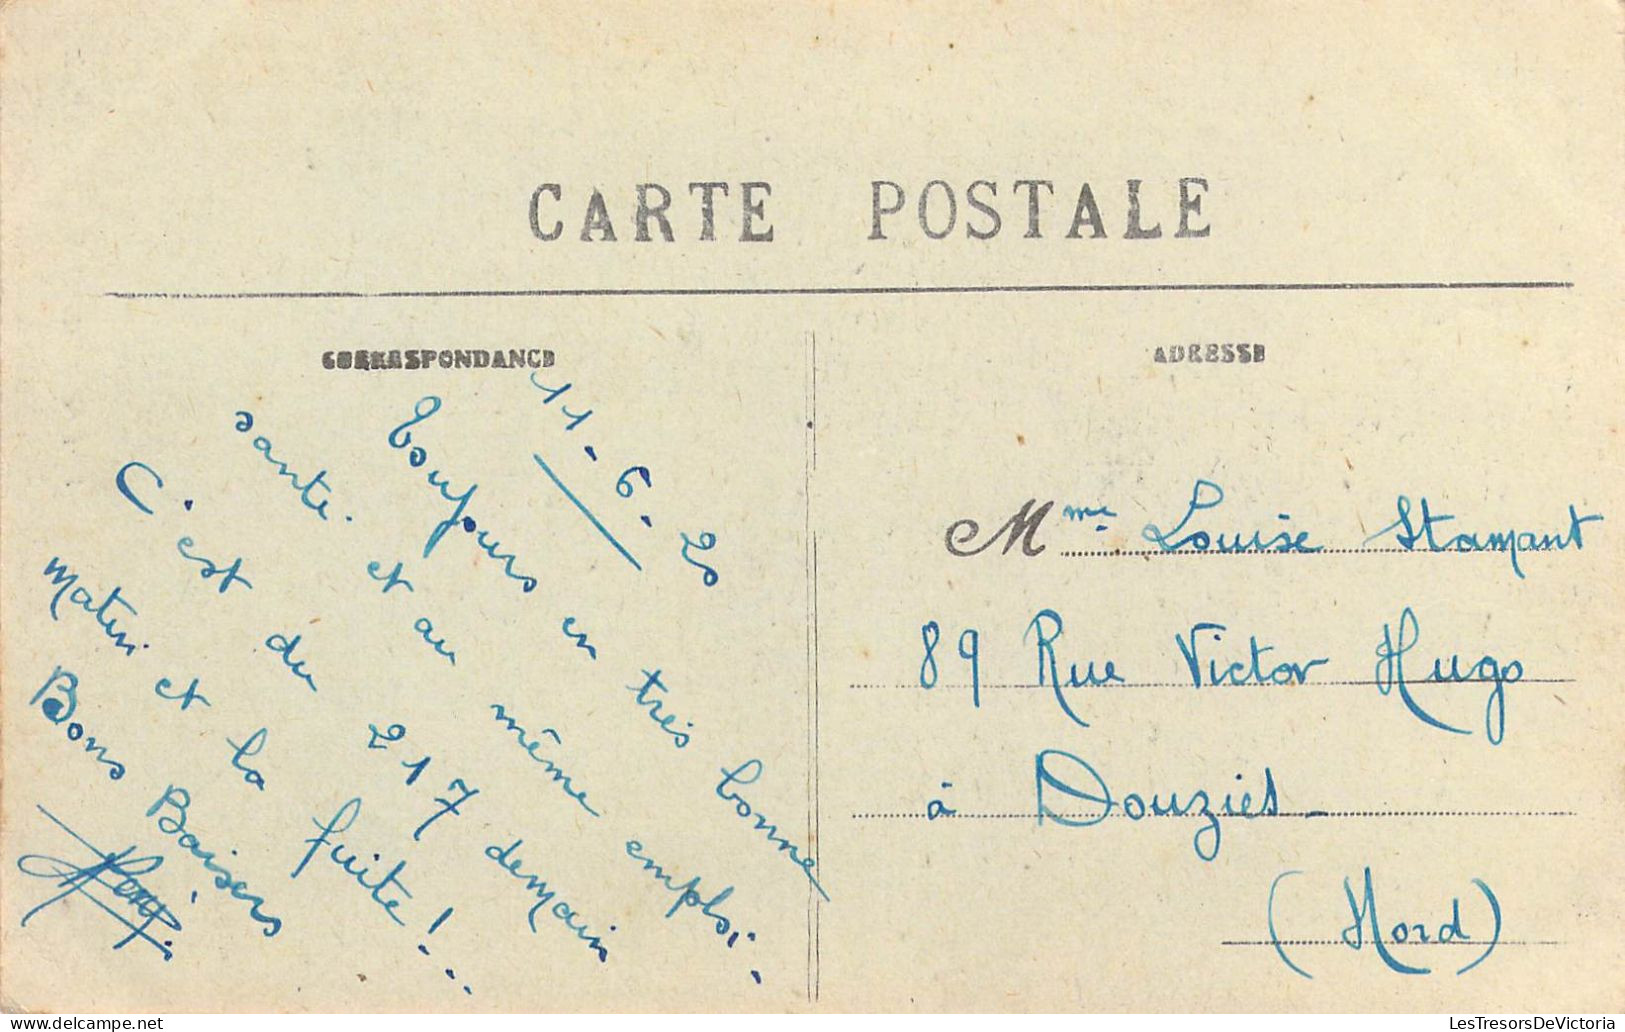 CARTE POSTALE
CORRESPONDANCE
ADRESSE
11-6-20
Toujours en très bonne
santé. et au même emploi.
C'est du 217 demain
matin et la fuite!..
Bons Baisers
Henri
Mme Louise Stamant
89 Rue Victor Hugo
à Douzies
(Nord)
LesTresorsDeVictoria